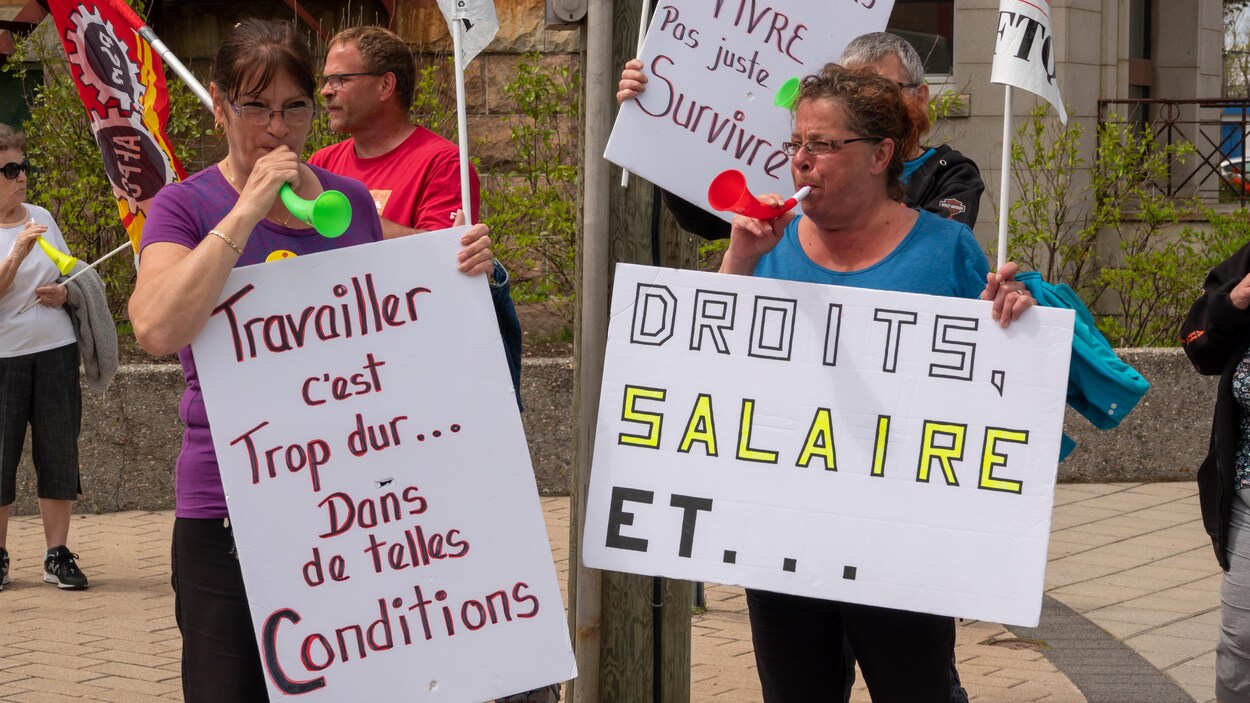 VIVRE
Pas juste
Survivre
FTQ
Travailler
c'est
Trop dur...
Dans
de telles
Conditions
DROITS,
SALAIRE
ET...